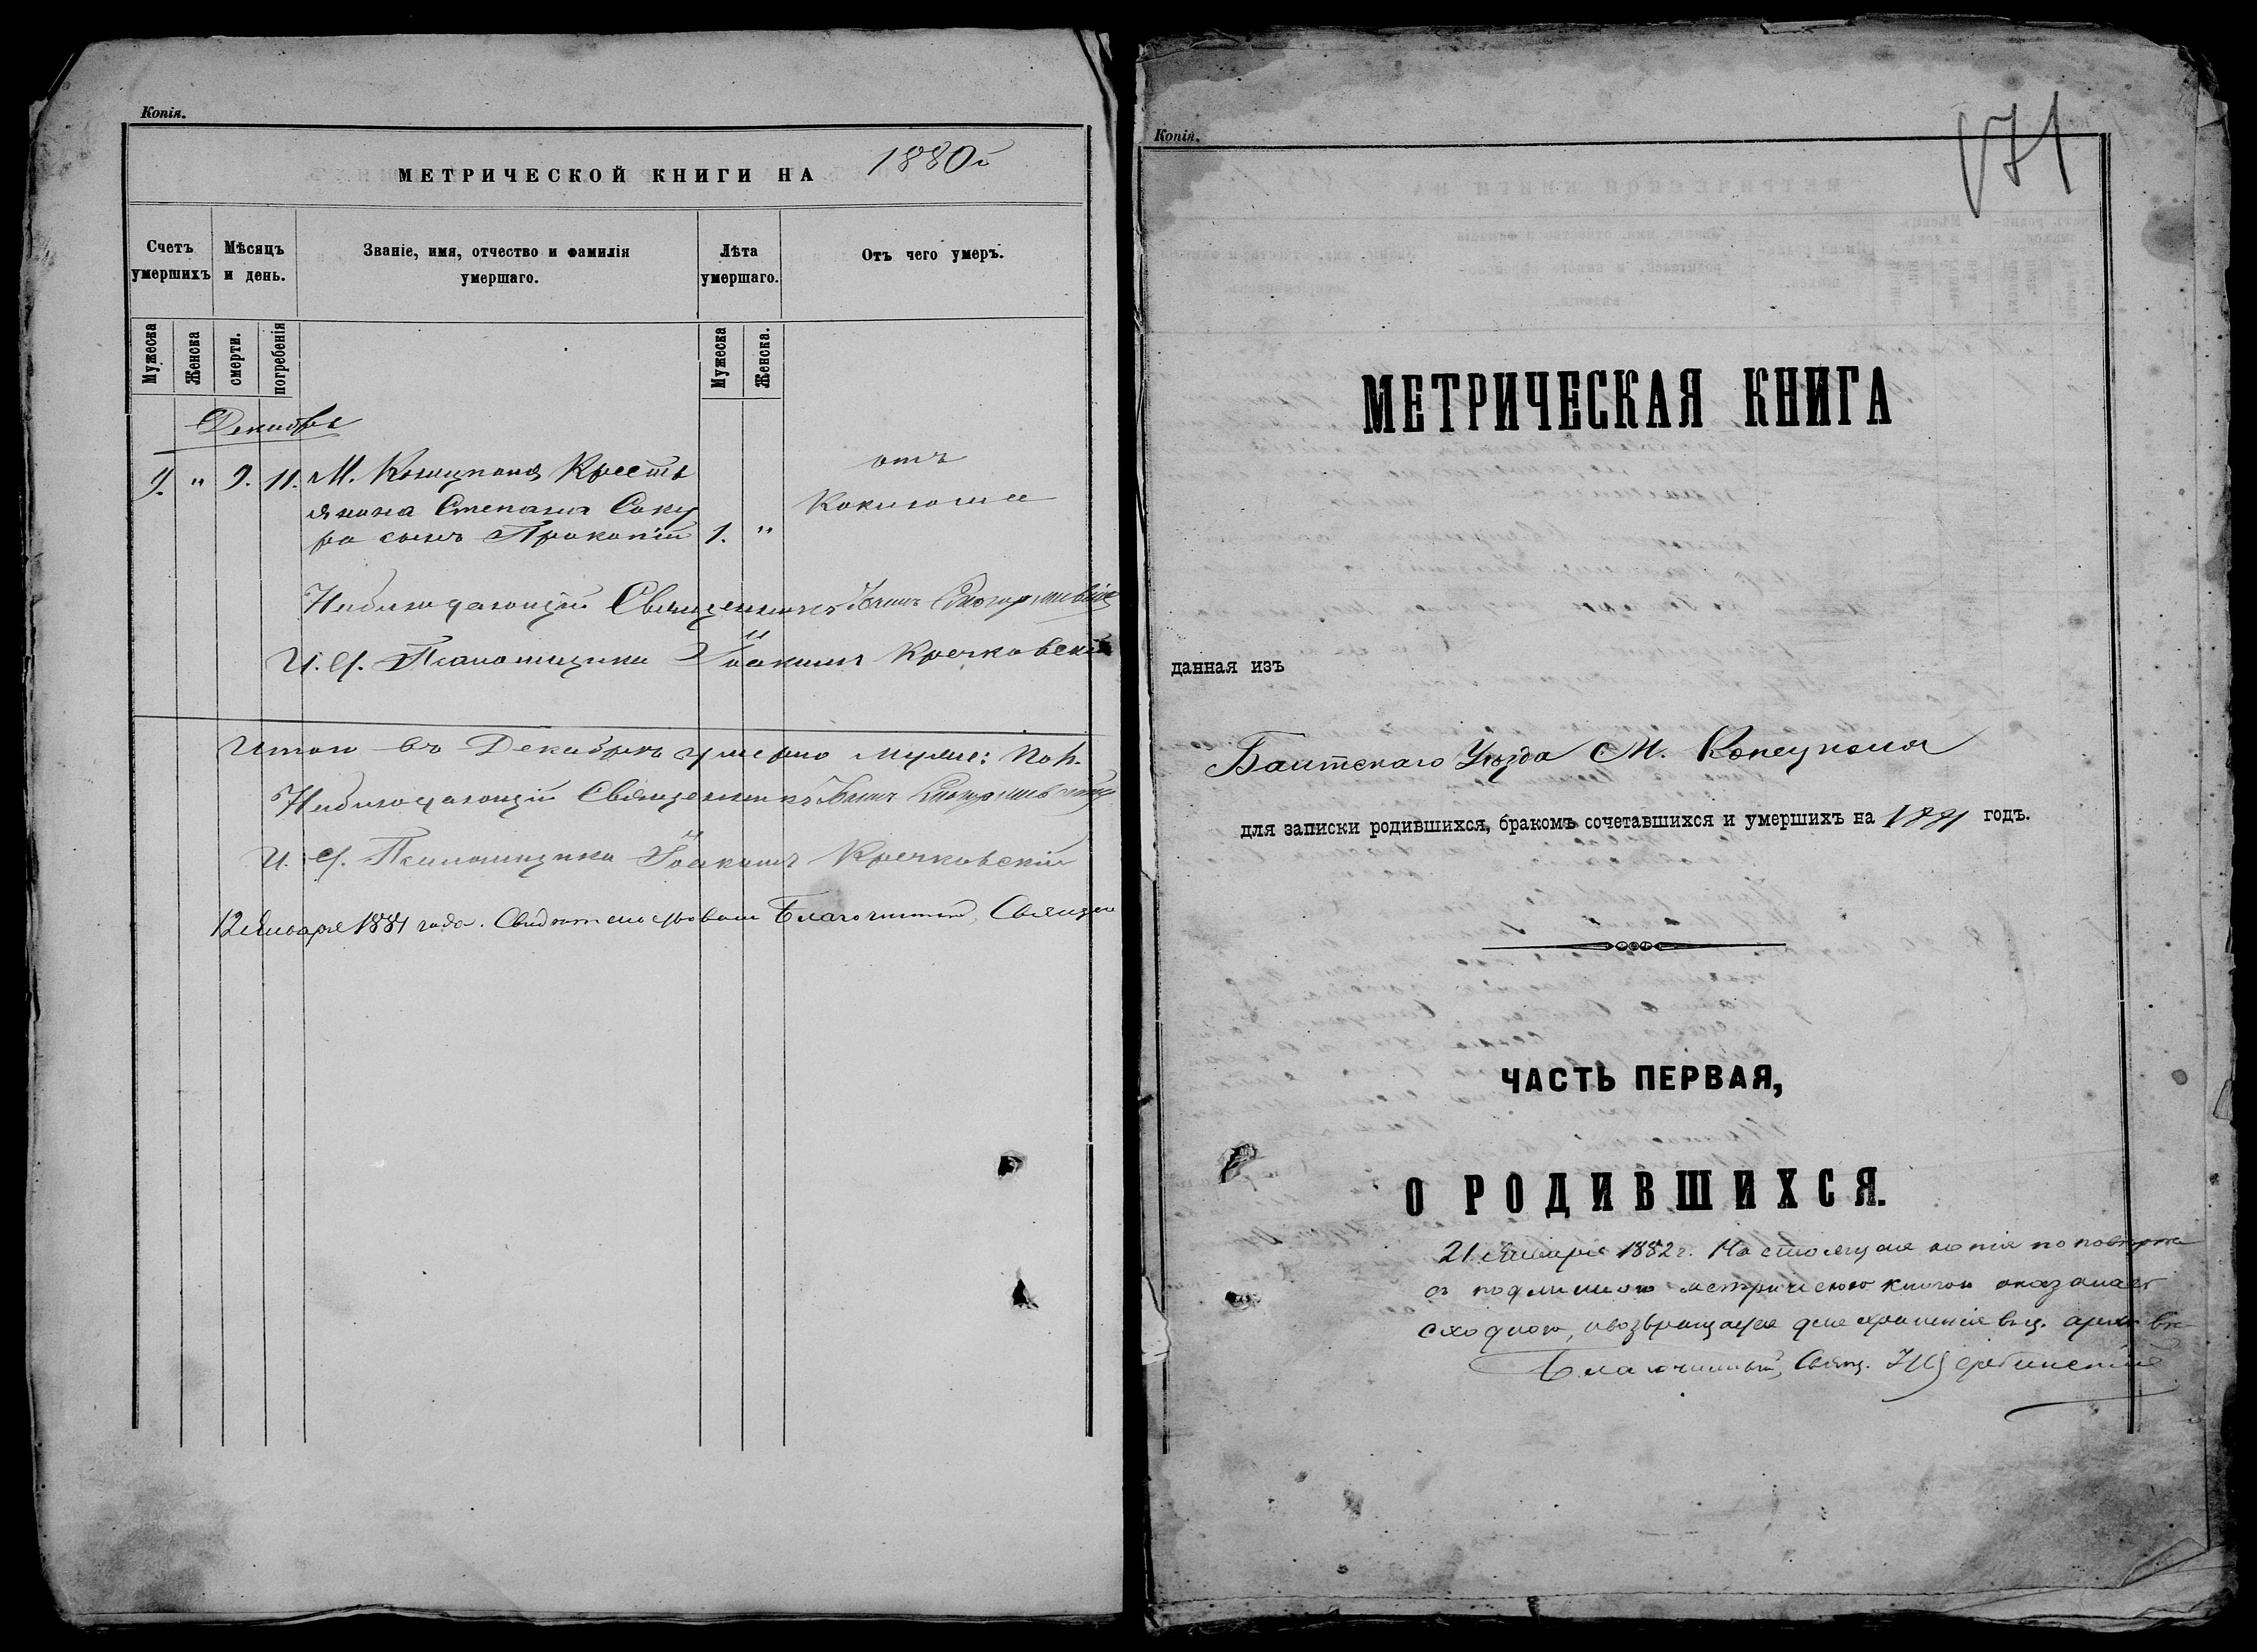 Копія.
МЕТРИЧЕСКОЙ КНИГИ НА 1880й
Счетъ умершихъ
Мѣсяцъ и день.
Званіе, имя, отчество и фамилія умершаго.
Лѣта умершаго.
Отъ чего умеръ.
Мужеска
Женска
смерти.
погребенія
Мужеска
Женска.
Декабрь
9. " 9. 11. М. Конецполя Кресть
янина Степана Соку
ра сынъ Прокопій 1. "
отъ
Коклюша
Наблюдающій Священникъ
И. д. Псаломщика Іоакимъ Кречковскій
Итого въ Декабрѣ умерло муж:
Наблюдающій Священникъ
И. д. Псаломщика Іоакимъ Кречковскій
12 Января 1881 года. Свидѣтельствовалъ Благочинный, Священ
Копія.
171
МЕТРИЧЕСКАЯ КНИГА
данная изъ
Балтскаго Уѣзда М. Конецполя
для записки родившихся, бракомъ сочетавшихся и умершихъ на 1881 годъ.
ЧАСТЬ ПЕРВАЯ,
О РОДИВШИХСЯ.
21 Января 1882 г. Настоящая копія по повѣркѣ
съ подлинною метрическою книгою оказалась
сходною, и возвращается для храненія въ ц. архивѣ
Благочинный, Свящ.